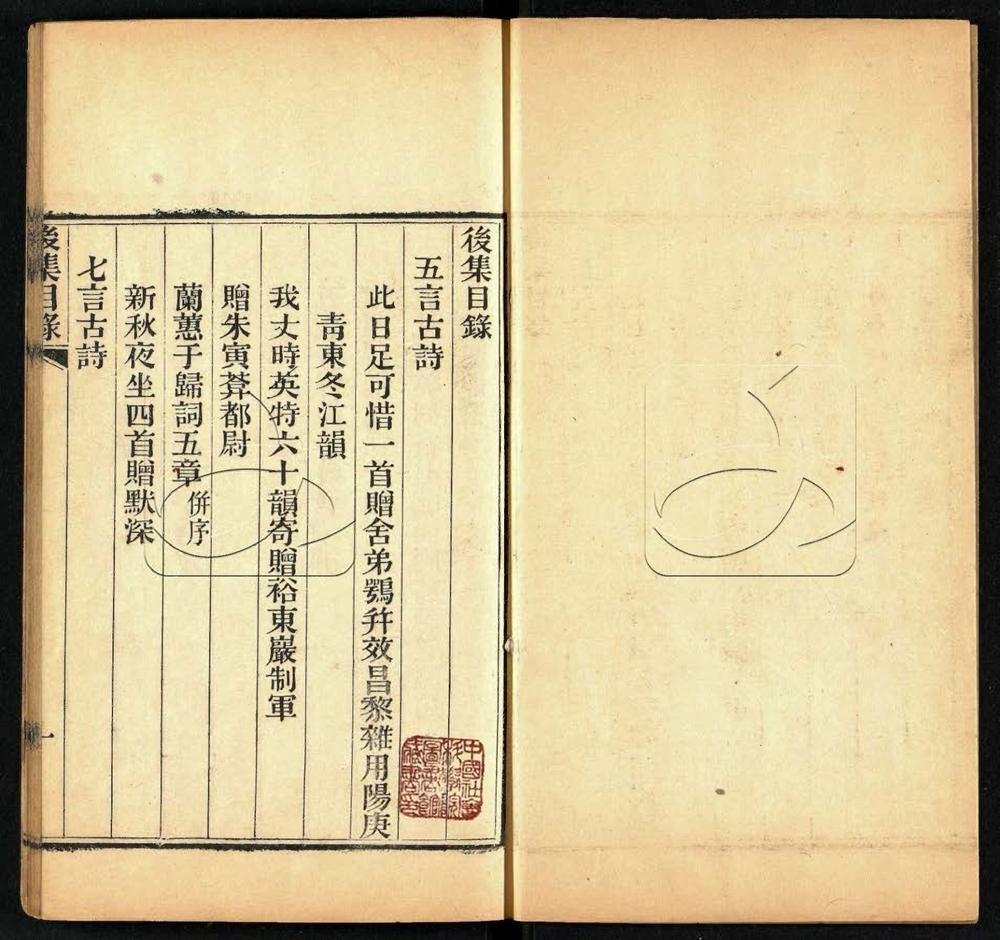 後集目錄
五言古詩
此日足可惜一首贈舍弟鶚并效昌黎雜用陽庚
青東冬江韻
我丈時英特六十韻寄贈裕東巖制軍
贈朱寅葊都尉
蘭蕙于歸詞五章併序
新秋夜坐四首贈默深
七言古詩
後集目錄
一